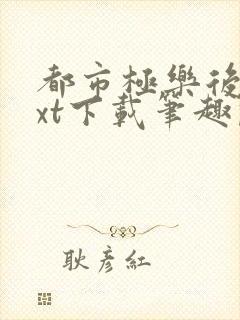 都市極樂後
xt下載筆趣
耿彦紅